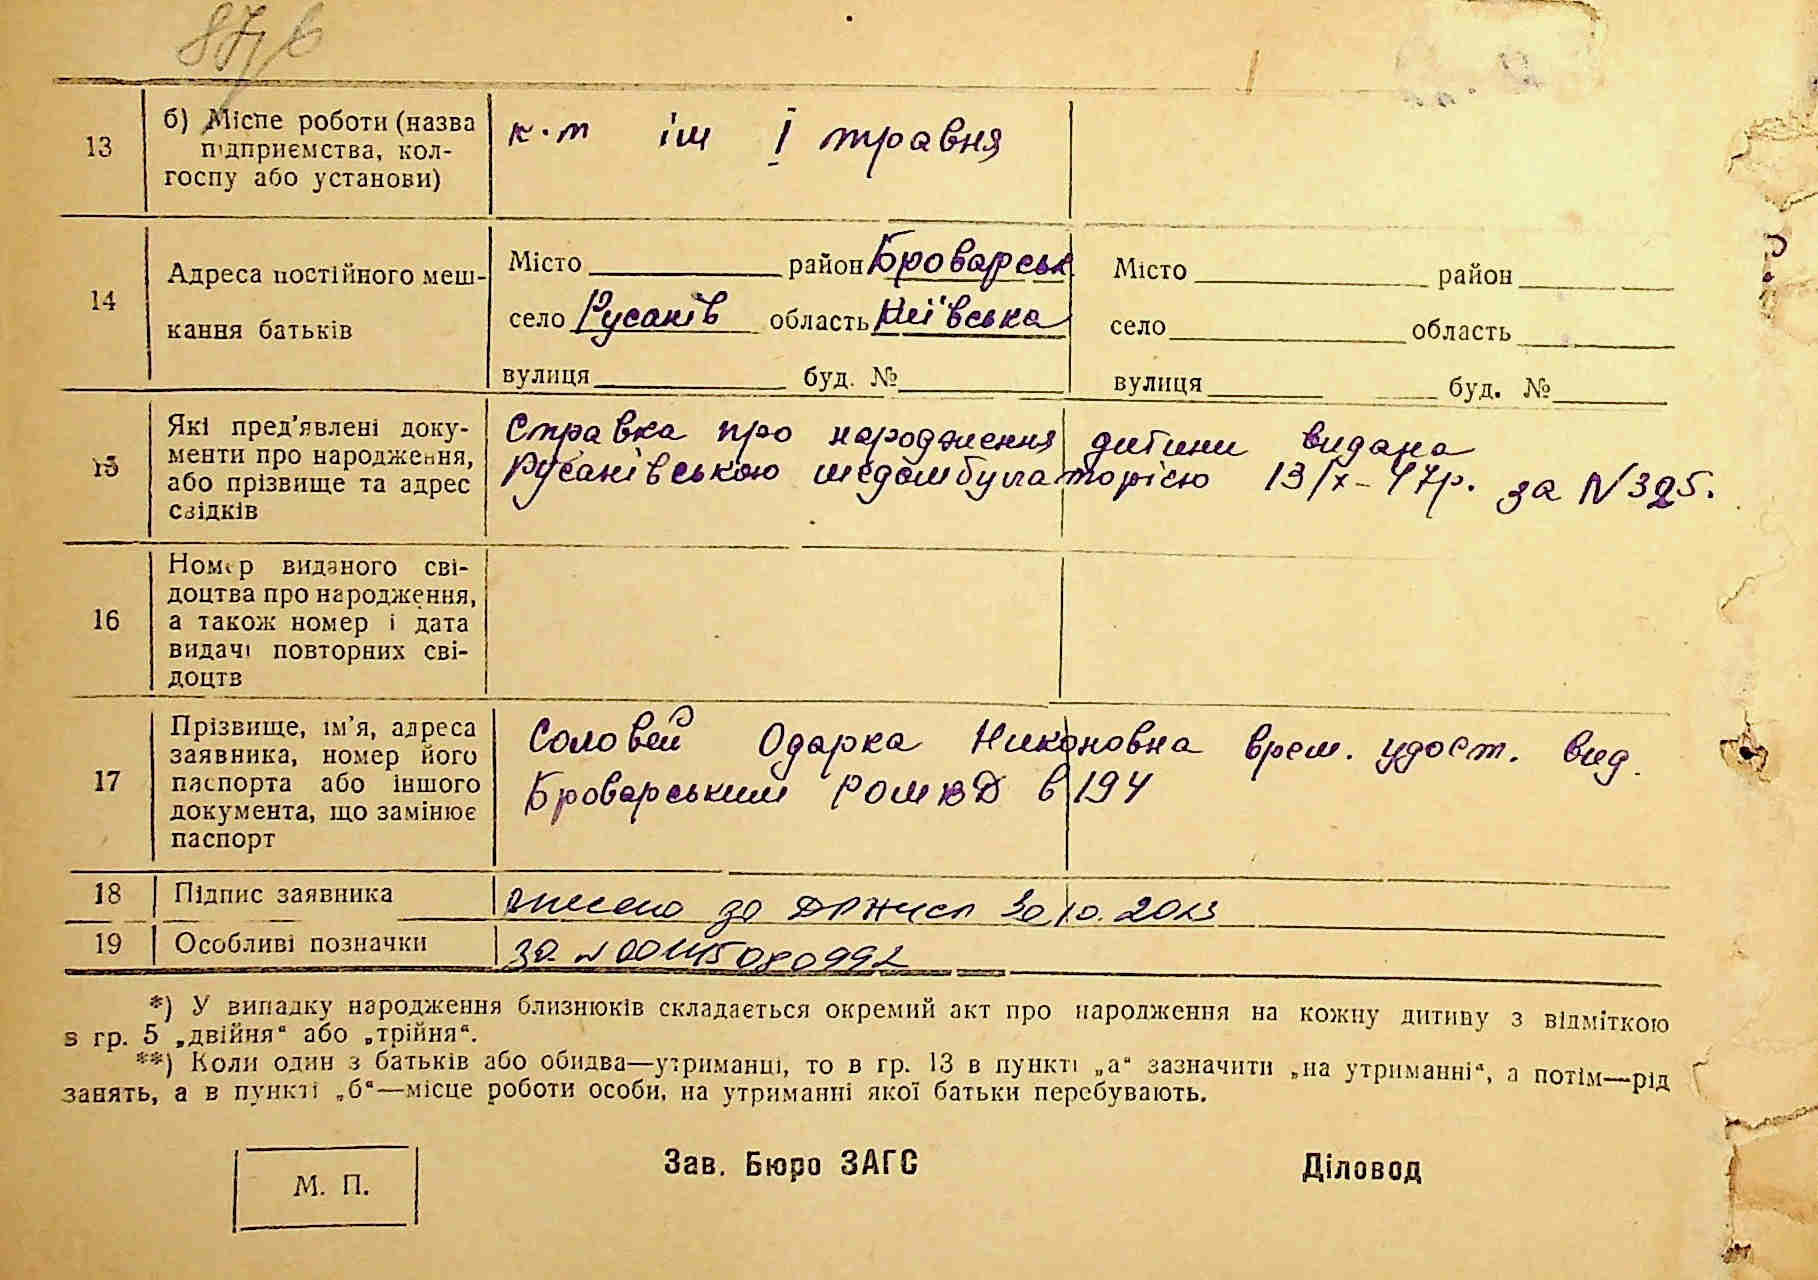 13
б) Місце роботи (назва підприємства, колгоспу або установи)
к-п ім 1 травня
14
Адреса постійного меш-
кання батьків
Місто район Броварськ
село Русанів область Київська
вулиця буд. №
Місто район
село область
вулиця буд. №
15
Які пред'явлені доку-
менти про народження,
або прізвище та адрес
свідків
Справка про народження дитини видана
Русанівською медамбулаторією 13/X-47р. за N 325.
16
Номер виданого сві-
доцтва про народження,
а також номер і дата
видачі повторних сві-
доцтв
17
Прізвище, ім'я, адреса
заявника, номер його
паспорта або іншого
документа, що замінює
паспорт
Соловей Одарка Никоновна врем. удост. вид.
Броварським РОМВД в 194
18
Підпис заявника
внесено до ДРАЦСГ 30.10.2013
19
Особливі позначки
за № 00125080992
*) У випадку народження близнюків складається окремий акт про народження на кожну дитину з відміткою
в гр. 5 „двійня“ або „трійня“.
**) Коли один з батьків або обидва—утриманці, то в гр. 13 в пункті „а“ зазначити „на утриманні“, а потім—рід
занять, а в пункті „б“—місце роботи особи, на утриманні якої батьки перебувають.
М. П.
Зав. Бюро ЗАГС
Діловод